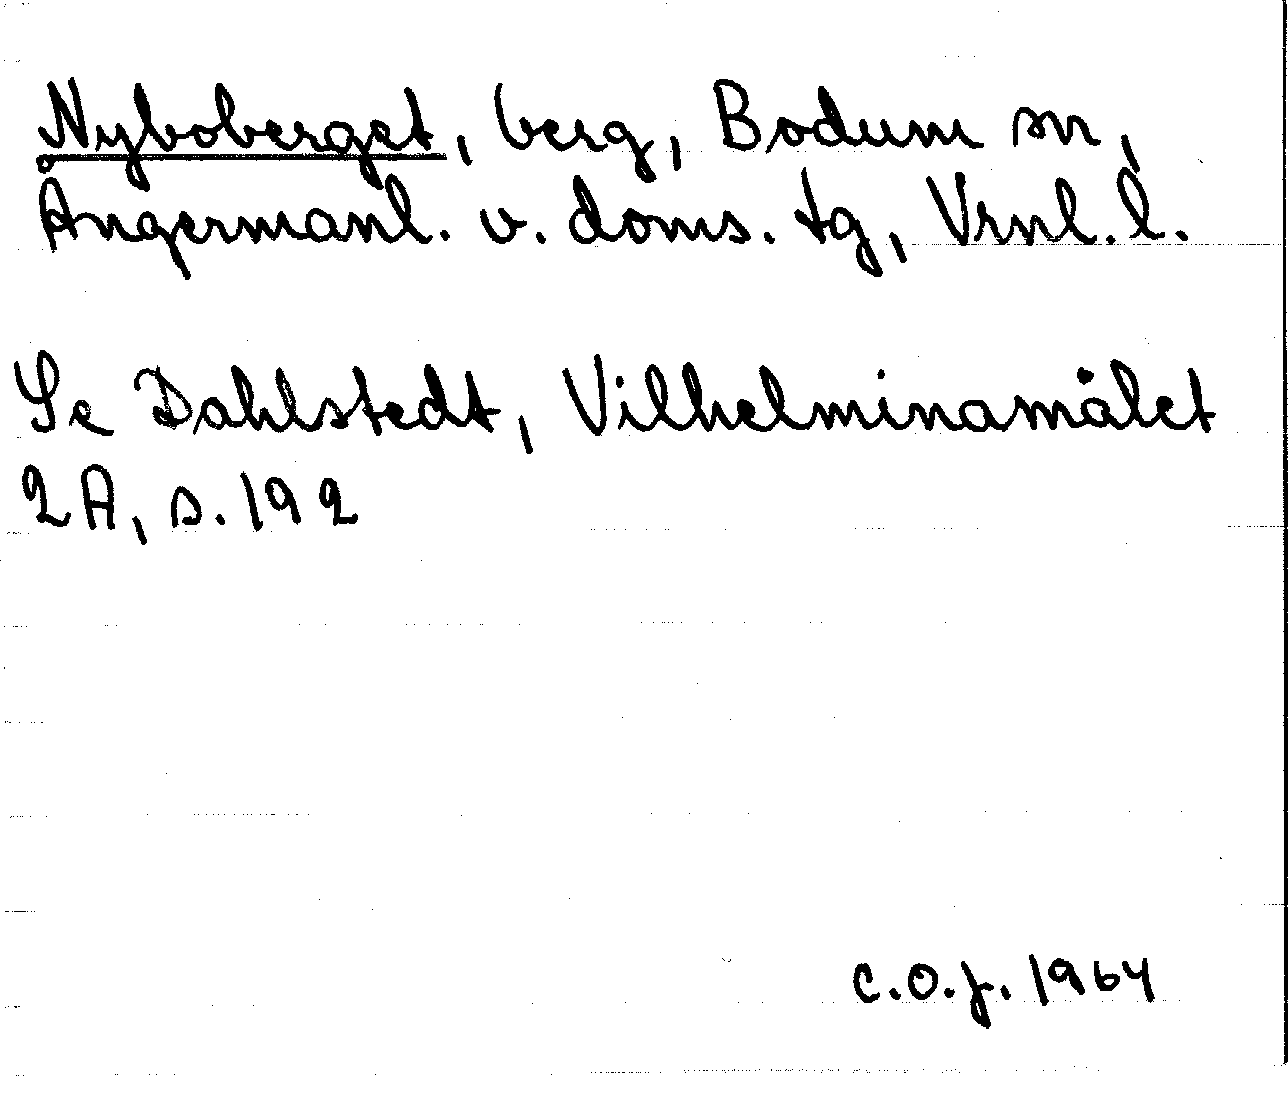 Nyboberget, berg, Bodum sn,
Ångermanl. v. doms. tg, Vrnl. l.
Se Dahlstedt, Vilhelminamålet
2A, s. 192
C.O.J. 1964